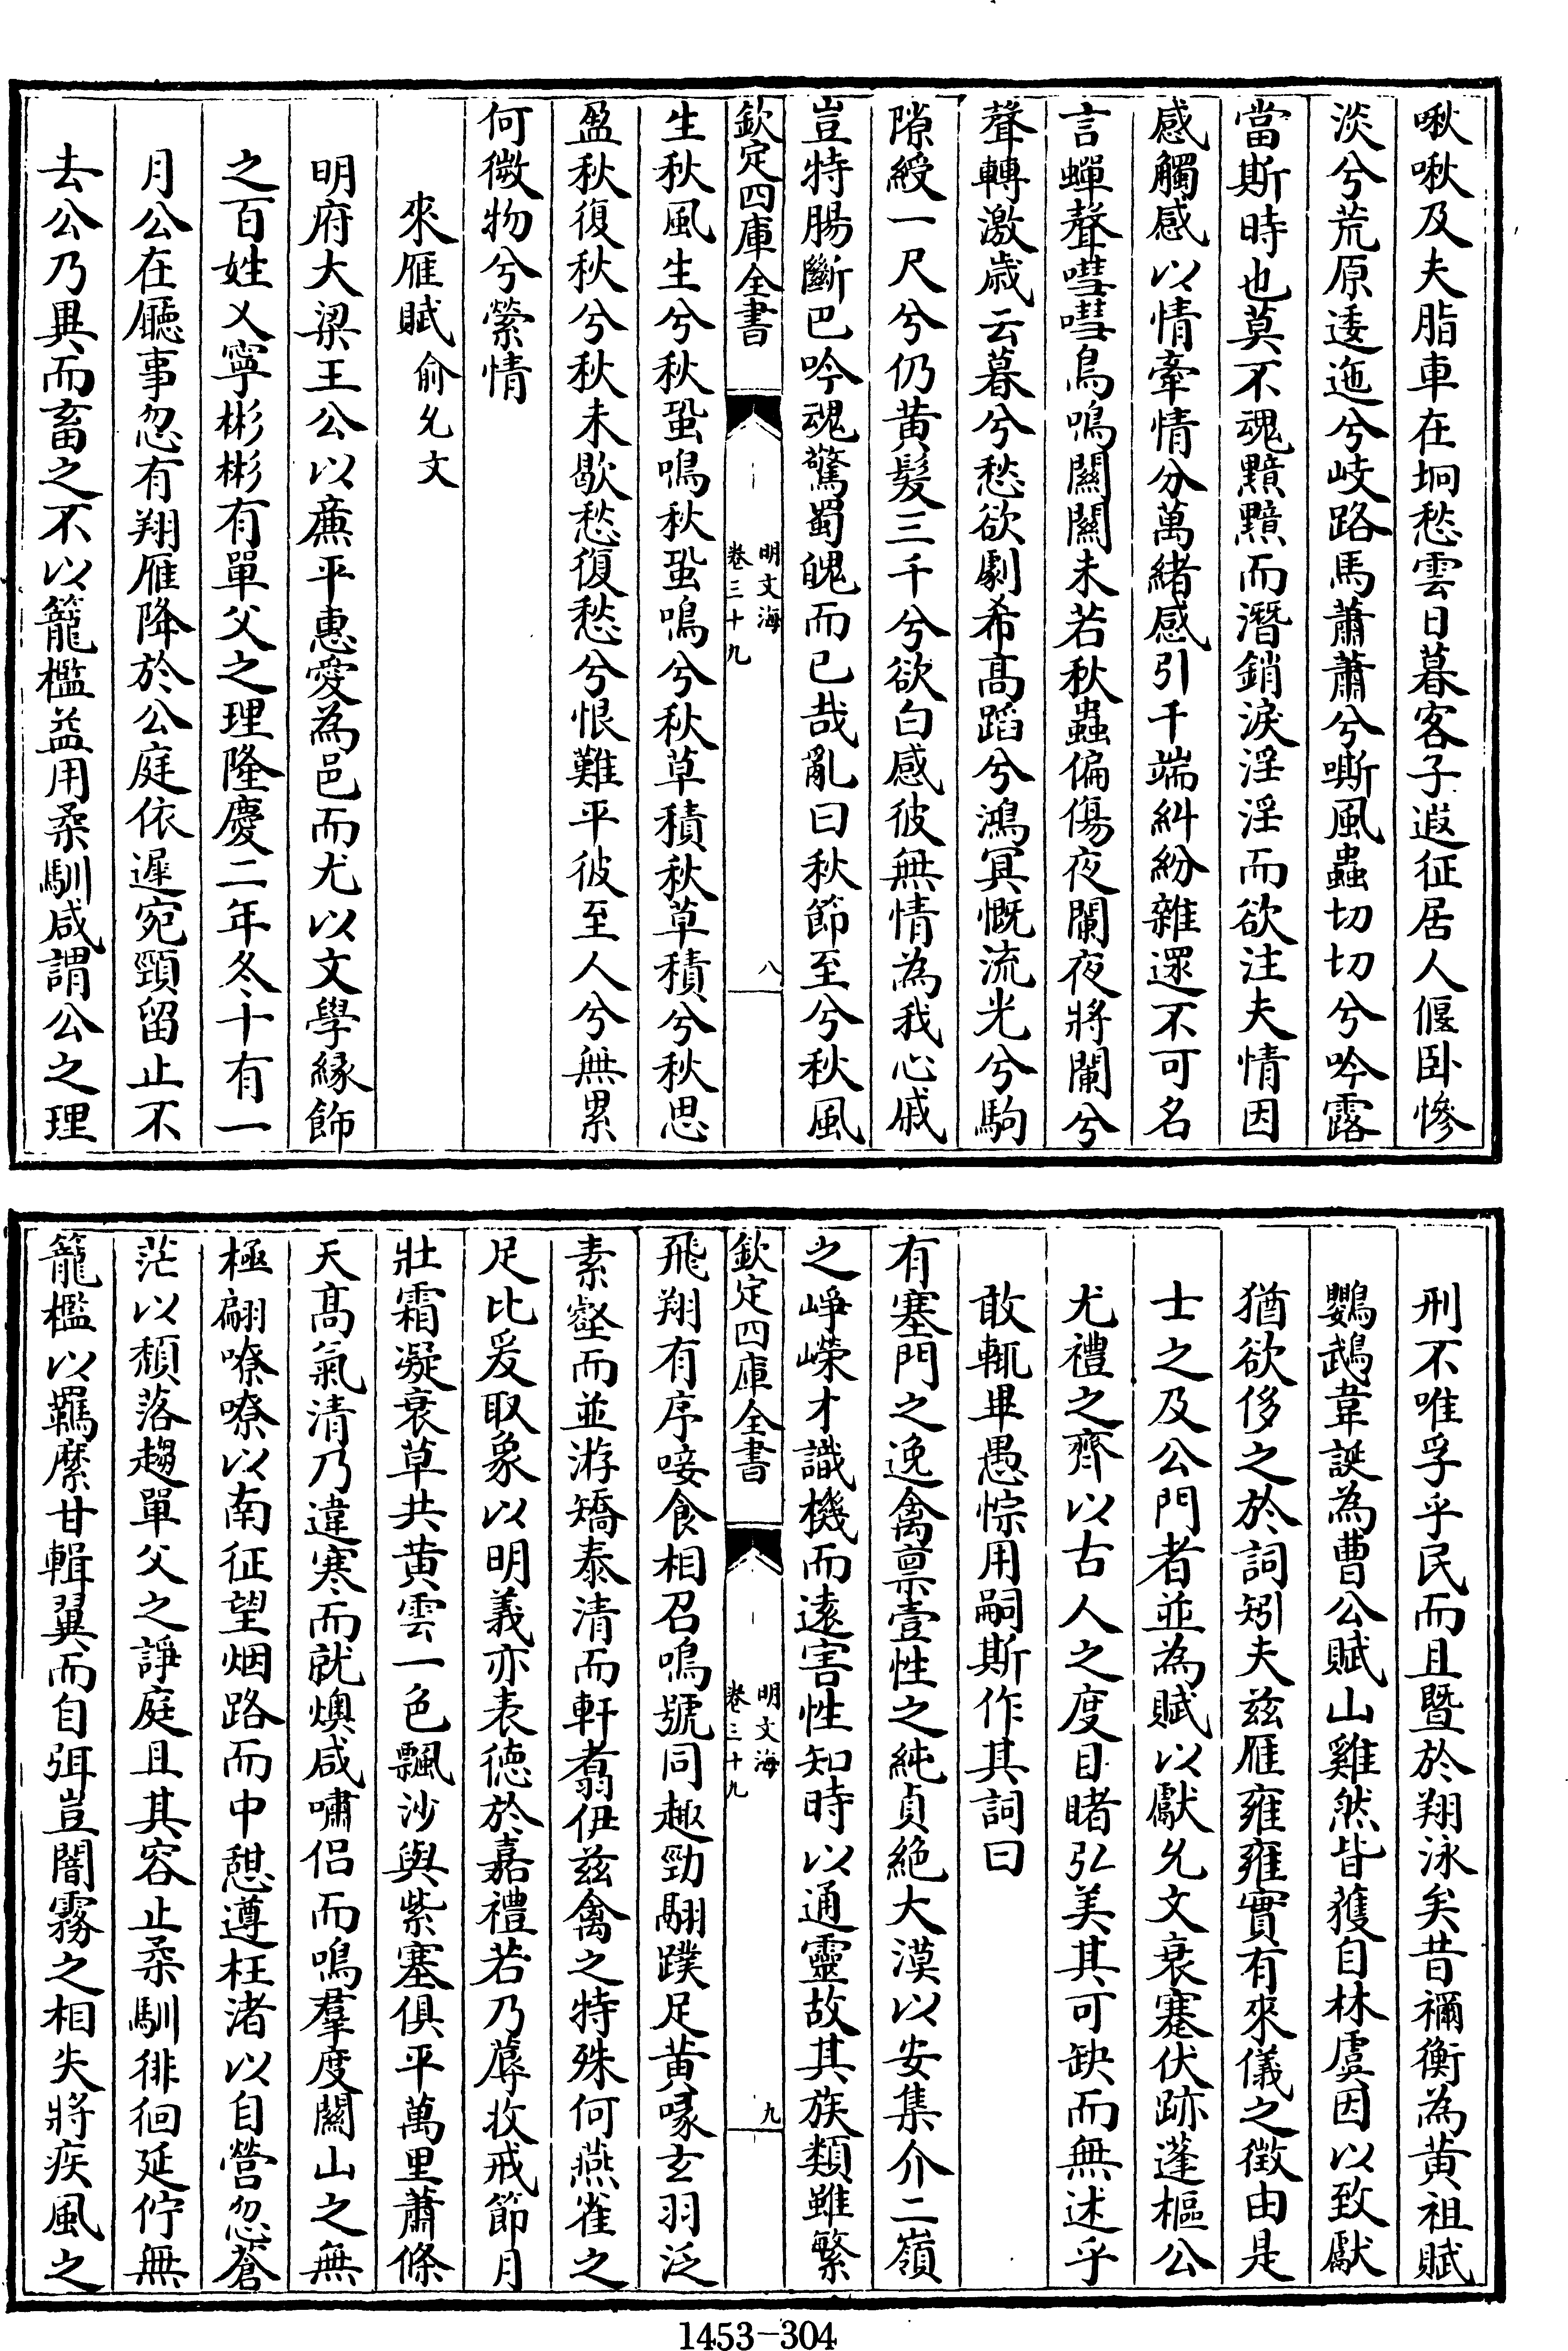 啾啾及夫脂車在坰愁雲日暮客子遐征居人偃卧慘
淡兮荒原逶迤兮岐路馬蕭蕭兮嘶風蟲切切兮吟露
當斯時也莫不魂黯黯而潛銷淚淫淫而欲注夫情因
感觸感以情牽情分萬緒感引千端糾紛雜遝不可名
言蟬聲嘒嘒鳥鳴關關未若秋蟲偏傷夜闌夜將闌兮
聲轉激歲云暮兮愁欲劇希高蹈兮鴻冥慨流光兮駒
隙綬一尺兮仍黄髮三千兮欲白感彼無情為我心戚
豈特腸斷巴吟魂驚蜀魄而已哉亂曰秋節至兮秋風
欽定四庫全書
明文海
卷三十九
八
生秋風生兮秋蛩鳴秋蛩鳴兮秋草積秋草積兮秋思
盈秋復秋兮秋未歇愁復愁兮恨難平彼至人兮無累
何微物兮縈情
來雁賦 俞允文
明府大梁王公以亷平惠愛為邑而尤以文學緣飾
之百姓乂寧彬彬有單父之理隆慶二年冬十有一
月公在廳事忽有翔雁降於公庭依遲宛頸留止不
去公乃異而畜之不以籠檻益用柔馴咸謂公之理
刑不唯孚乎民而且暨於翔泳矣昔禰衡為黄祖賦
鸚鵡韋誕為曹公賦山雞然皆獲自林虞因以致獻
猶欲侈之於詞矧夫兹雁雍雍實有來儀之徵由是
士之及公門者並為賦以獻允文衰蹇伏跡蓬樞公
尤禮之齊以古人之度目睹弘美其可缺而無述乎
敢輒畢愚悰用嗣斯作其詞曰
有塞門之逸禽禀壹性之純貞絶大漠以安集介二嶺
之崢嶸才識機而遠害性知時以通靈故其族類雖繁
欽定四庫全書
明文海
卷三十九
九
飛翔有序唼食相召鳴號同趣勁翮蹼足黄喙玄羽泛
素壑而並游矯泰清而軒翥伊兹禽之特殊何燕雀之
足比爰取象以明義亦表徳於嘉禮若乃蓐收戒節月
壯霜凝衰草共黄雲一色飄沙與紫塞俱平萬里蕭條
天高氣清乃違寒而就燠咸嘯侣而鳴羣度關山之無
極翩嘹嘹以南征望烟路而中憇遵枉渚以自營忽蒼
茫以頽落趨單父之諍庭且其容止柔馴徘徊延佇無
籠檻以羈縻甘輯翼而自弭豈闇霧之相失將疾風之
1453-304